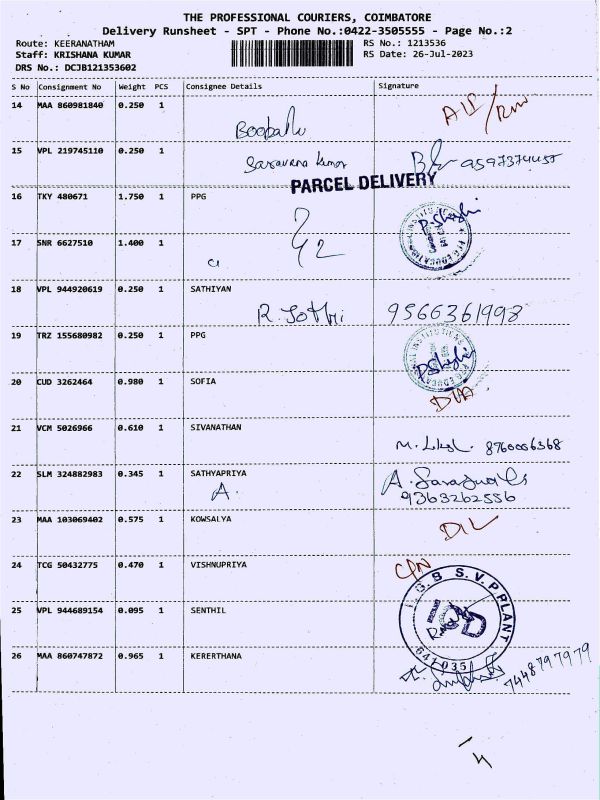 THE PROFESSIONAL COURIERS, COIMBATORE
Delivery Runsheet - SPT - Phone No.:0422-3505555 - Page No.:2
Route: KEERANATHAM
RS No.: 1213536
Staff: KRISHANA KUMAR
RS Date: 26-Jul-2023
DRS No.: DCJB121353602
S No Consignment No Weight PCS Consignee Details Signature
14 MAA 860981840 0.250 1
15 VPL 219745110 0.250 1
Saravana Kumar
PARCEL DELIVERY
16 TKY 480671 1.750 1 PPG
17 SNR 6627510 1.400 1
18 VPL 944920619 0.250 1 SATHIYAN
R. Jothi 9566361998
19 TRZ 155680982 0.250 1 PPG
20 CUD 3262464 0.980 1 SOFIA
21 VCM 5026966 0.610 1 SIVANATHAN
8760056368
22 SLM 324882983 0.345 1 SATHYAPRIYA
A.
9363262556
23 MAA 103069402 0.575 1 KOWSALYA
24 TCG 50432775 0.470 1 VISHNUPRIYA
S.V.P PLANT
25 VPL 944689154 0.095 1 SENTHIL
641 035
26 MAA 860747872 0.965 1 KERERTHANA
7448797979